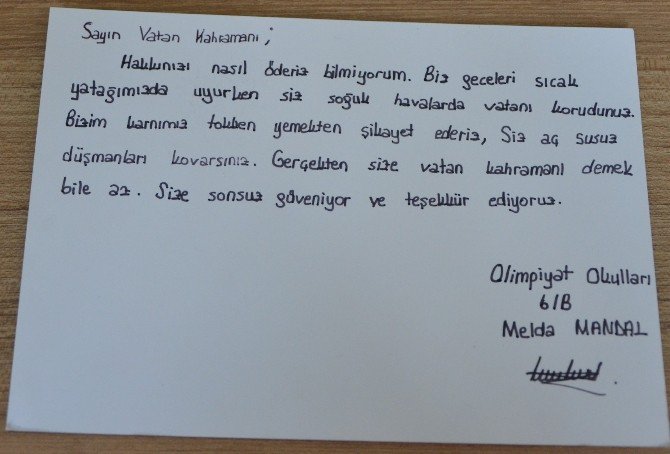 Sayın Vatan Kahramanı;
Hakkınızı nasıl öderiz bilmiyorum. Biz geceleri sıcak
yatağımızda uyurken siz soğuk havalarda vatanı korudunuz.
Bizim karnımız tokken yemekten şikayet ederiz, Siz aç susuz
düşmanları kovarsınız. Gerçekten size vatan kahramanı demek
bile az. Size sonsuz güveniyor ve teşekkür ediyoruz.
Olimpiyat Okulları
6/B
Melda MANDAL